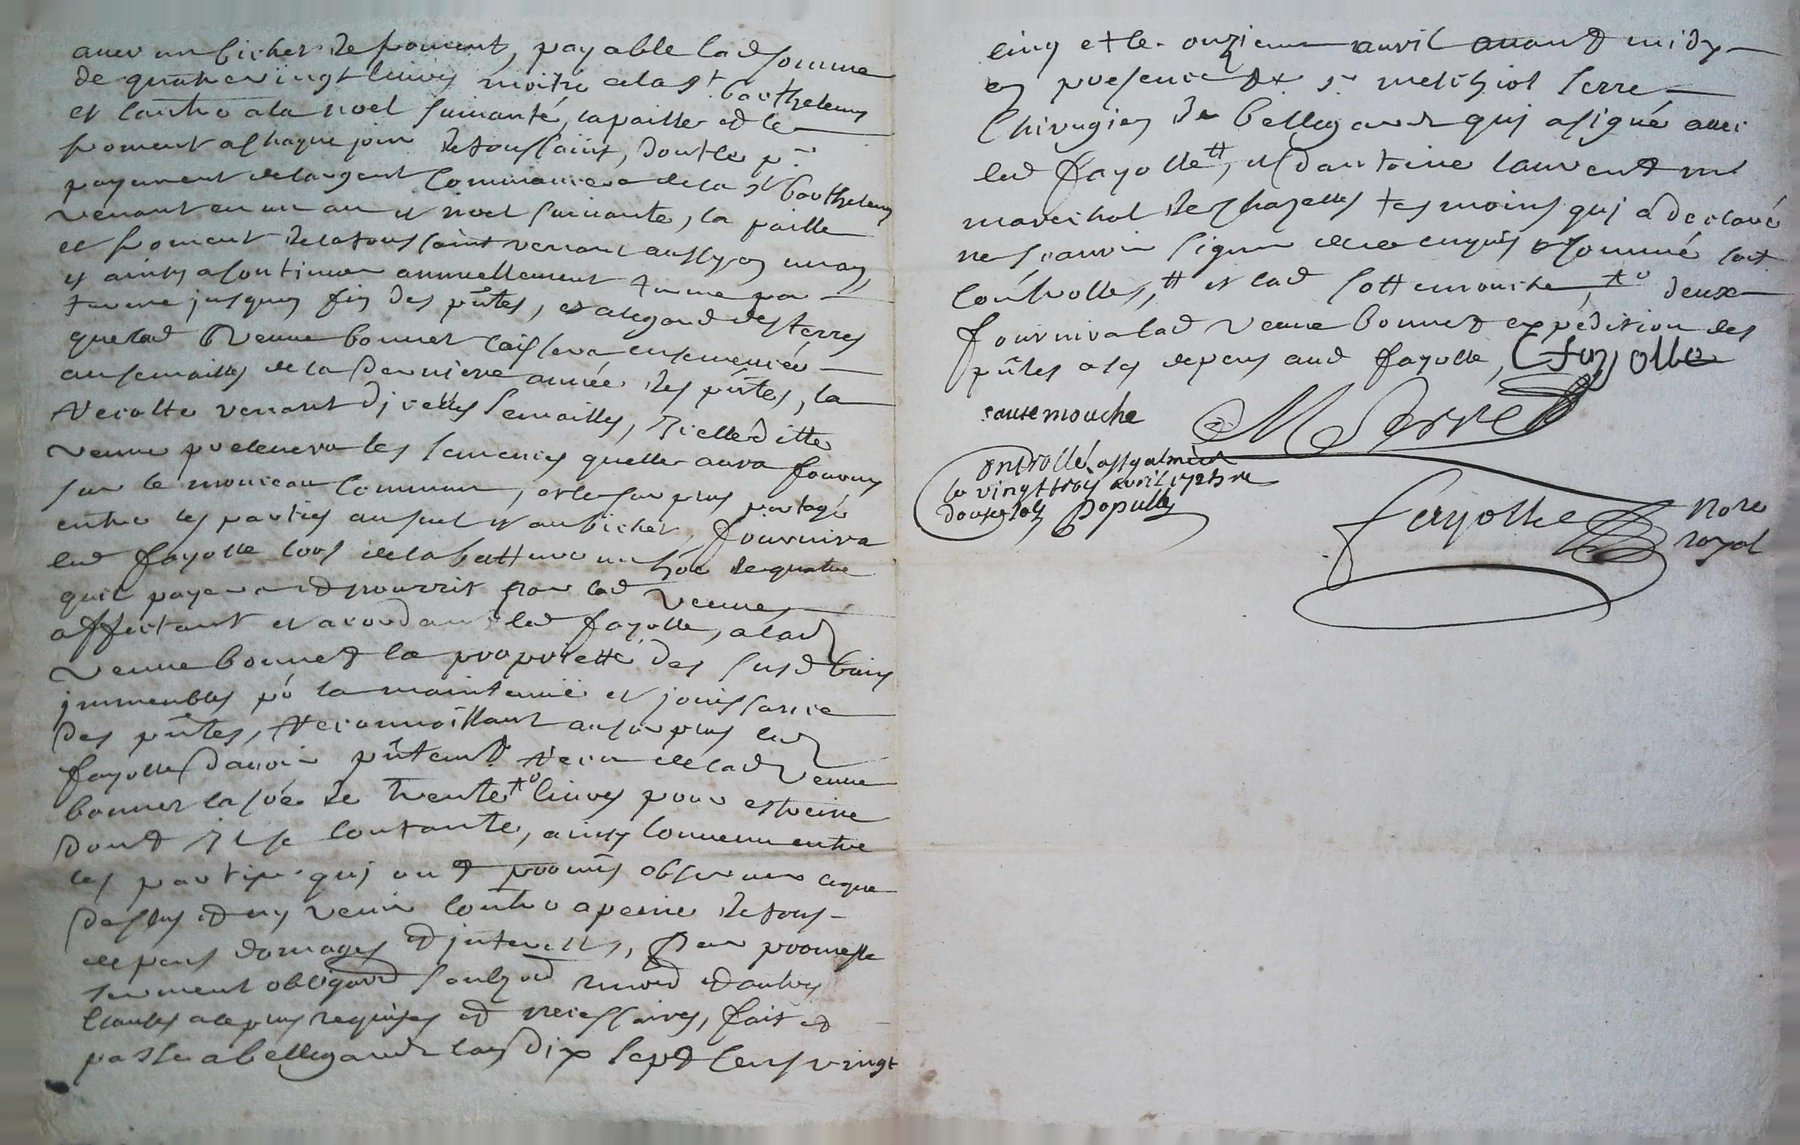 avec un bichet de froment, payable lad somme
de quatrevingt livres moitié a la St barthelemy
et lautre a la noel suivante, la paille et le
froment a chaque jour de toussaint, dont le pr
payement de largent commancera de la St barthelemy
venant en un an et noel suivante, la paille
et froment de la toussaint venant aussy en un an,
et ainsy a continuer annuellement terme par
terme jusques fin des pntes, et alegard des terres
que lad veuve bonnet laissera ensemencée
au semailles de la derniere année des pntes, la
recolte venant d'icelles semailles, icelle ditte
veuve prelevera les semences quelle aura fournys
sur le monceau commun, et le surplus partagé
entre les parties au seul et au bichet, fournira
led fayolle lors de la batture un hoe de quatre
quil payera et nourrit par lad veuve,
affectant et acordant led fayolle, a lad
veuve bonnet la proprietté des susd biens
immeubles po la maintenüe et jouissance
des pntes, reconnoissant au surplus led
fayolle davoir pntemt receu de lad veuve
bonnet la soe de trente to livres pour estreine
dont il se contante, ainsy convenu entre
les parties qui ont promis observer ceque
dessus et ny venir contre a peine de tous
depens domages et interests, par promesse
serment obligaon soubzon renon et autres
clauses a ce plus requises et necessaires, fait et
passé a bellegarde lan dix sept cens vingt
cinq et le onzieme avril avant midy
en presence de sr melchiol serre
Chirugien de bellegarde qui a signé avec
led fayolle #, et dantoine laurent me
marechal de chazelles tesmoins qui a declaré
ne scavoir signer de ce enquis & sommé soit
controllé, # et lad sottemouche, to deux
fournira lad veuve bonnet expedition des
pntes a ses depens aud fayolle, C fayolle
sautemouche M Serre
Controllé a St galmier
le vingt trois avril 1725 re
douze sols Populle
fayolle nore
royal